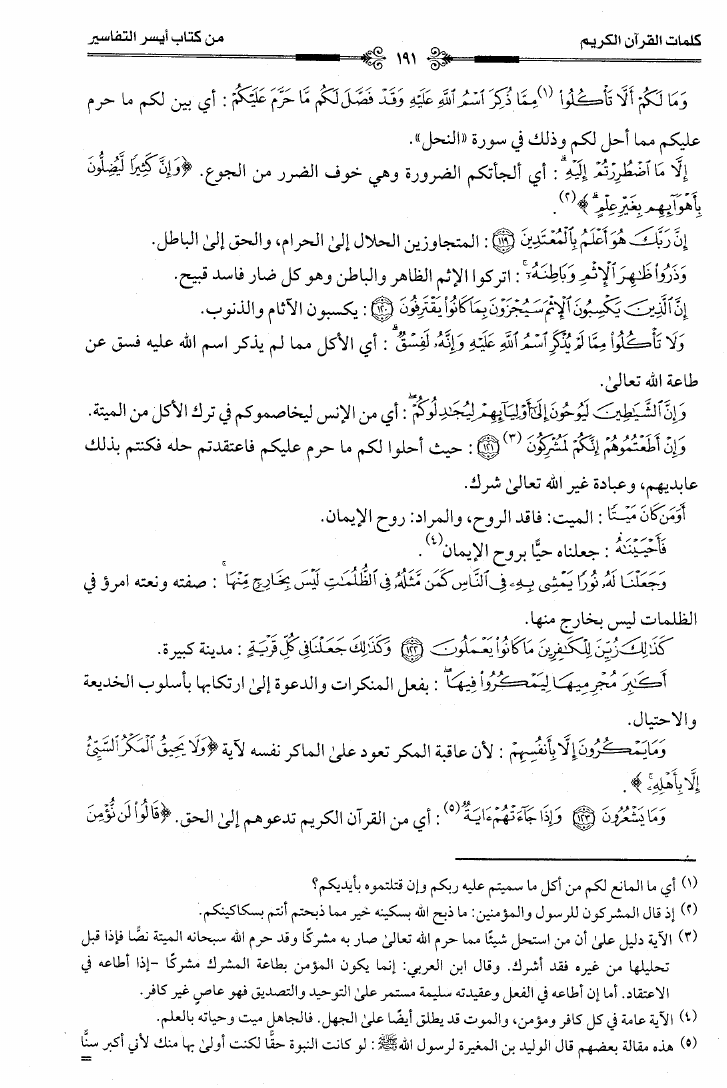 كلمات القرآن الكريم
من كتاب أيسر التفاسير
١٩١
وَمَا لَكُمْ أَلَّا تَأْكُلُوا۟ (١) مِمَّا ذُكِرَ ٱسْمُ ٱللَّهِ عَلَيْهِ وَقَدْ فَصَّلَ لَكُم مَّا حَرَّمَ عَلَيْكُمْ : أي بين لكم ما حرم
عليكم مما أحل لكم وذلك في سورة «النحل».
إِلَّا مَا ٱضْطُرِرْتُمْ إِلَيْهِ ۗ : أي ألجأتكم الضرورة وهي خوف الضرر من الجوع. ﴿وَإِنَّ كَثِيرًا لَّيُضِلُّونَ
بِأَهْوَآئِهِم بِغَيْرِ عِلْمٍ ۗ﴾ (٢).
إِنَّ رَبَّكَ هُوَ أَعْلَمُ بِٱلْمُعْتَدِينَ ١١٩ : المتجاوزين الحلال إلىٰ الحرام، والحق إلىٰ الباطل.
وَذَرُوا۟ ظَـٰهِرَ ٱلْإِثْمِ وَبَاطِنَهُۥٓ ۚ : اتركوا الإثم الظاهر والباطن وهو كل ضار فاسد قبيح.
إِنَّ ٱلَّذِينَ يَكْسِبُونَ ٱلْإِثْمَ سَيُجْزَوْنَ بِمَا كَانُوا۟ يَقْتَرِفُونَ ١٢٠ : يكسبون الآثام والذنوب.
وَلَا تَأْكُلُوا۟ مِمَّا لَمْ يُذْكَرِ ٱسْمُ ٱللَّهِ عَلَيْهِ وَإِنَّهُۥ لَفِسْقٌ ۗ : أي الأكل مما لم يذكر اسم الله عليه فسق عن
طاعة الله تعالىٰ.
وَإِنَّ ٱلشَّيَـٰطِينَ لَيُوحُونَ إِلَىٰٓ أَوْلِيَآئِهِمْ لِيُجَـٰدِلُوكُمْ ۖ : أي من الإنس ليخاصموكم في ترك الأكل من الميتة.
وَإِنْ أَطَعْتُمُوهُمْ إِنَّكُمْ لَمُشْرِكُونَ (٣) ١٢١ : حيث أحلوا لكم ما حرم عليكم فاعتقدتم حله فكنتم بذلك
عابديهم، وعبادة غير الله تعالىٰ شرك.
أَوَمَن كَانَ مَيْتًا : الميت: فاقد الروح، والمراد: روح الإيمان.
فَأَحْيَيْنَـٰهُ : جعلناه حيًّا بروح الإيمان(٤).
وَجَعَلْنَا لَهُۥ نُورًا يَمْشِى بِهِۦ فِى ٱلنَّاسِ كَمَن مَّثَلُهُۥ فِى ٱلظُّلُمَـٰتِ لَيْسَ بِخَارِجٍ مِّنْهَا ۚ : صفته ونعته امرؤ في
الظلمات ليس بخارج منها.
كَذَٰلِكَ زُيِّنَ لِلْكَـٰفِرِينَ مَا كَانُوا۟ يَعْمَلُونَ ١٢٢ وَكَذَٰلِكَ جَعَلْنَا فِى كُلِّ قَرْيَةٍ : مدينة كبيرة.
أَكَـٰبِرَ مُجْرِمِيهَا لِيَمْكُرُوا۟ فِيهَا ۖ : بفعل المنكرات والدعوة إلىٰ ارتكابها بأسلوب الخديعة
والاحتيال.
وَمَا يَمْكُرُونَ إِلَّا بِأَنفُسِهِمْ : لأن عاقبة المكر تعود علىٰ الماكر نفسه لآية ﴿وَلَا يَحِيقُ ٱلْمَكْرُ ٱلسَّيِّئُ
إِلَّا بِأَهْلِهِۦ ۚ﴾.
وَمَا يَشْعُرُونَ ١٢٣ وَإِذَا جَآءَتْهُمْ ءَايَةٌ (٥): أي من القرآن الكريم تدعوهم إلىٰ الحق. ﴿قَالُوا۟ لَن نُّؤْمِنَ
(١) أي ما المانع لكم من أكل ما سميتم عليه ربكم وإن قتلتموه بأيديكم؟
(٢) إذ قال المشركون للرسول والمؤمنين: ما ذبح الله بسكينه خير مما ذبحتم أنتم بسكاكينكم.
(٣) الآية دليل علىٰ أن من استحل شيئًا مما حرم الله تعالىٰ صار به مشركًا وقد حرم الله سبحانه الميتة نصًّا فإذا قبل
تحليلها من غيره فقد أشرك. وقال ابن العربي: إنما يكون المؤمن بطاعة المشرك مشركًا -إذا أطاعه في
الاعتقاد. أما إن أطاعه في الفعل وعقيدته سليمة مستمر علىٰ التوحيد والتصديق فهو عاصٍ غير كافر.
(٤) الآية عامة في كل كافر ومؤمن، والموت قد يطلق أيضًا علىٰ الجهل. فالجاهل ميت وحياته بالعلم.
(٥) هذه مقالة بعضهم قال الوليد بن المغيرة لرسول الله ﷺ : لو كانت النبوة حقًّا لكنت أولىٰ بها منك لأني أكبر سنًّا
=